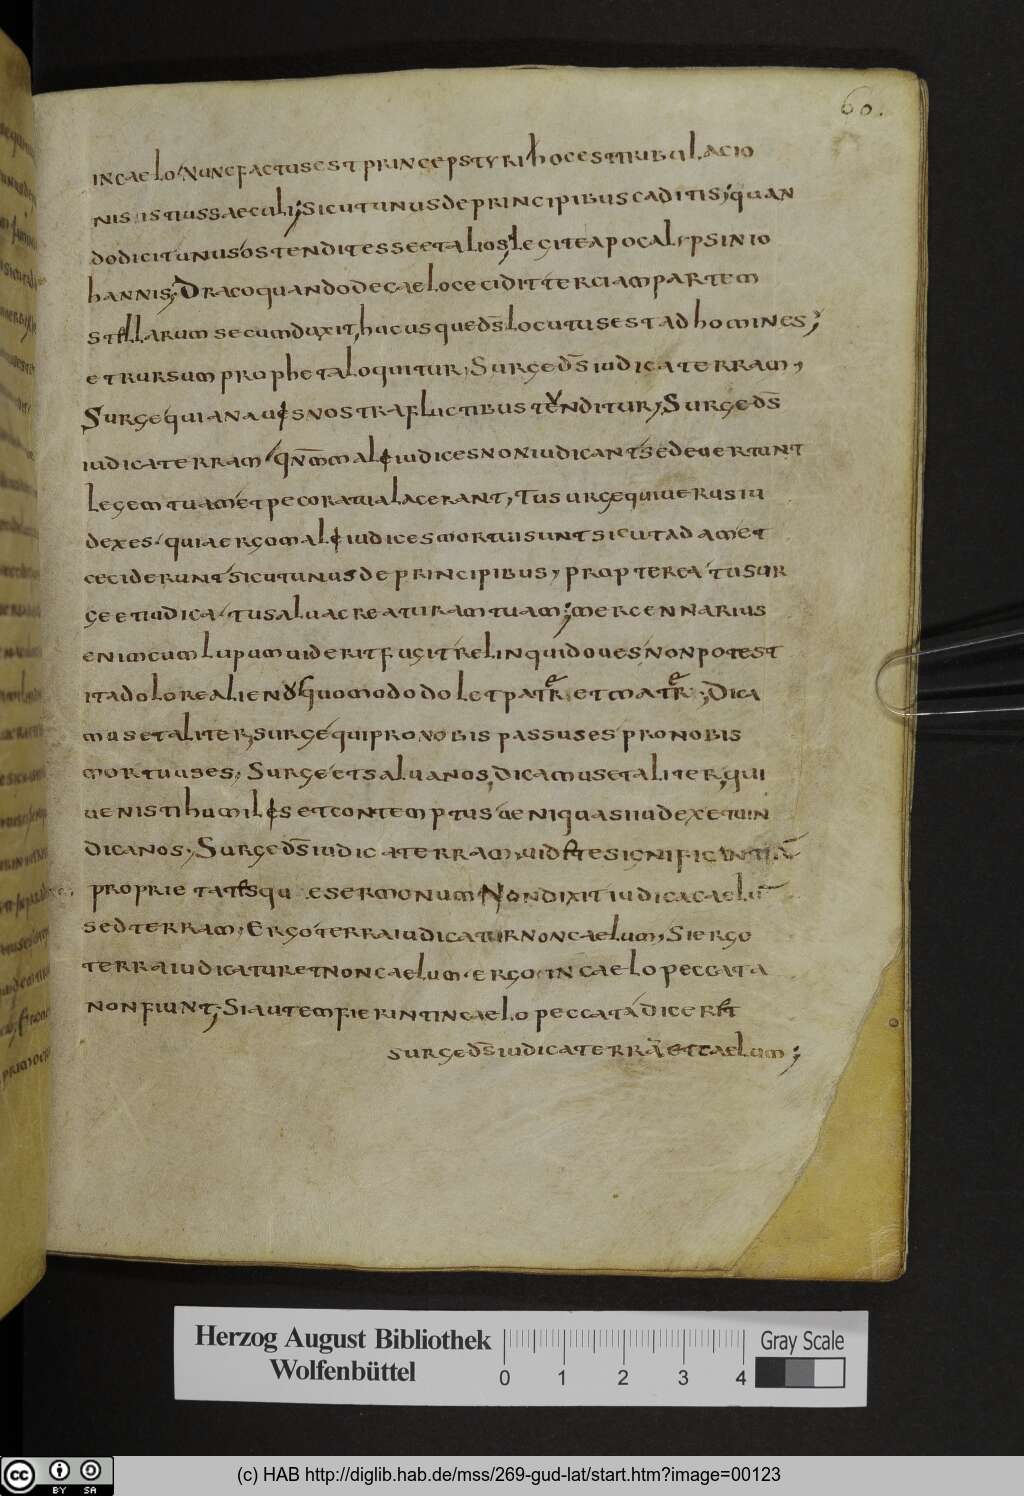 60.
in caelo. Nunc factus est princeps tyri hoc est tribulacio
nis istius saeculi; Sicut unus de principibus caditis; quan
do dicit unus ostendit esse et alios; legite apocalipsin io
hannis; Draco quando de caelo cecidit terciam partem
stellarum secum duxit, hucusque ds locutus est ad homines;
et rursum propheta loquitur, Surge ds iudica terram,
Surge quia nauis nostra fluctibus tenditur, Surge ds
iudica terram, qnm mali iudices non iudicant sed euertunt
legem tuam et pecora tua lacerant, Tu surge qui uerus iu
dex es. quia ergo mali iudices mortui sunt sicut adam et
ceciderunt sicut unus de principibus, propterea tu sur
ge et iudica. tu salua creaturam tuam; mercennarius
enim cum lupum uiderit fugit relinquid oues non potest
ita dolore alieno quomodo dolet pater et mater; Dica
mus et aliter, surge qui pro nobis passus es pro nobis
mortuus es, Surge et salua nos, dicamus et aliter, qui
uenisti humilis et contemptus ueni quasi iudex et uin
dica nos, Surge ds iudica terram, uidete significantiā
proprietatesque sermonum Non dixit iudica caelū
sed terram, Ergo terra iudicatur non caelum, Si ergo
terra iudicatur et non caelum. ergo in caelo peccata
non fiunt; Si autem fierint in caelo peccata diceret
surge ds iudica terrā et caelum;
Herzog August Bibliothek
Wolfenbüttel
0 1 2 3 4
Gray Scale
cc BY SA
(c) HAB http://diglib.hab.de/mss/269-gud-lat/start.htm?image=00123